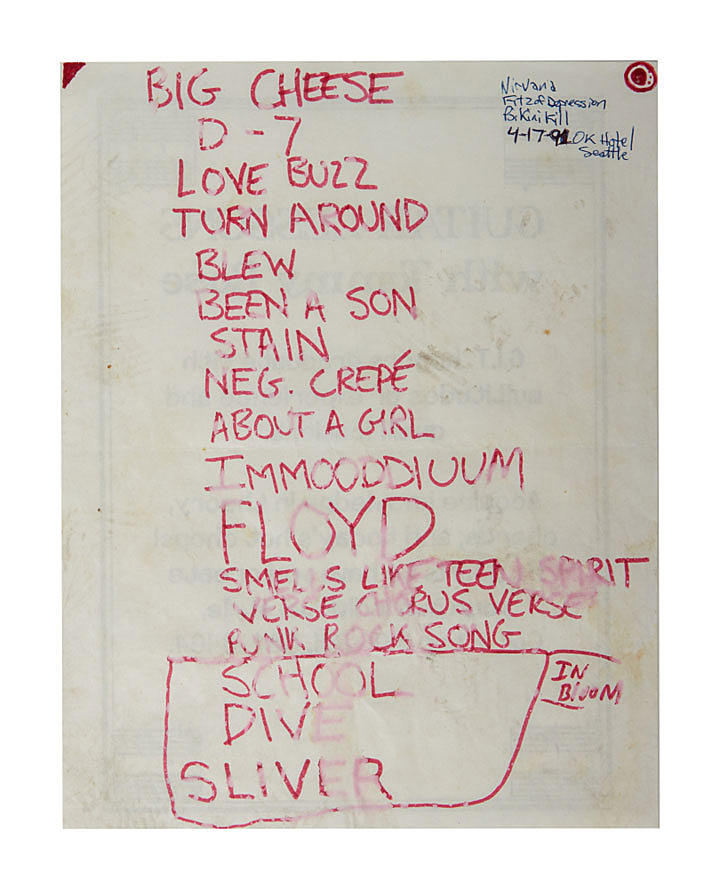 BIG CHEESE
D-7
LOVE BUZZ
TURN AROUND
BLEW
BEEN A SON
STAIN
NEG. CREPÉ
ABOUT A GIRL
IMMOODDIUUM
FLOYD
SMELLS LIKE TEEN SPIRIT
VERSE CHORUS VERSE
PUNK ROCK SONG
SCHOOL
DIVE
SLIVER
IN
BLOOM
Nirvana
Fitz of Depression
Bikini Kill
4-17-91 OK Hotel
Seattle